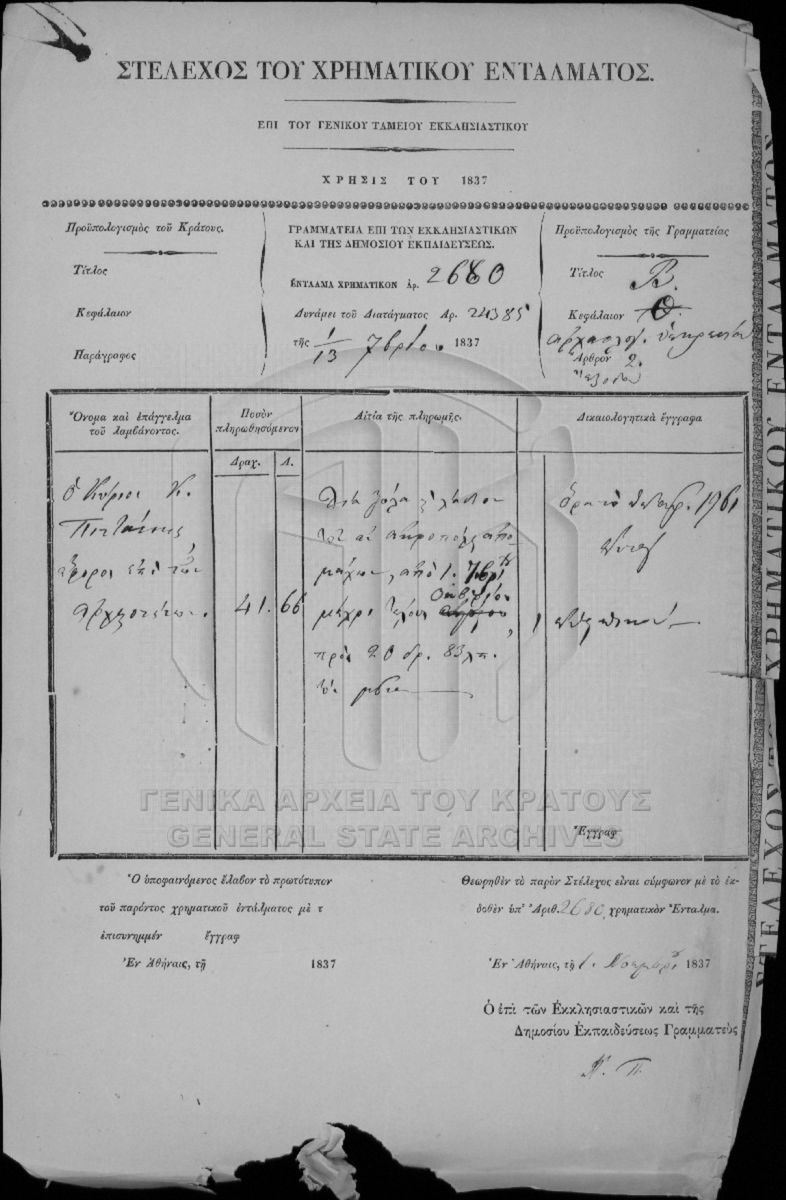 ΣΤΕΛΕΧΟΣ ΤΟΥ ΧΡΗΜΑΤΙΚΟΥ ΕΝΤΑΛΜΑΤΟΣ.
ΕΠΙ ΤΟΥ ΓΕΝΙΚΟΥ ΤΑΜΕΙΟΥ ΕΚΚΛΗΣΙΑΣΤΙΚΟΥ
ΧΡΗΣΙΣ ΤΟΥ 1837
Προϋπολογισμὸς τοῦ Κράτους.
Τίτλος
Κεφάλαιον
Παράγραφος
ΓΡΑΜΜΑΤΕΙΑ ΕΠΙ ΤΩΝ ΕΚΚΛΗΣΙΑΣΤΙΚΩΝ
ΚΑΙ ΤΗΣ ΔΗΜΟΣΙΟΥ ΕΚΠΑΙΔΕΥΣΕΩΣ.
ΕΝΤΑΛΜΑ ΧΡΗΜΑΤΙΚΟΝ ἀρ. 2680
Δυνάμει τοῦ Διατάγματος Αρ. 24385
τῆς 1/13 7βρίου 1837
Προϋπολογισμὸς τῆς Γραμματείας
Τίτλος Β.
Κεφάλαιον Θ.
Ἄρθρον 2.
Ὄνομα καὶ ἐπάγγελμα
τοῦ λαμβάνοντος.
Ποσὸν
πληρωθησόμενον
Δραχ. Λ.
Αἰτία τῆς πληρωμῆς.
Δικαιολογητικὰ ἔγγραφα
ὁ Κύριος Κ.
Πιττάκης
ἔφορος ἐπὶ τῶν
ἀρχαιοτήτων.
41. 66
μάχων, ἀπὸ 1. 7βρί
μέχρι τέλους Ὀκτωβρίου
πρὸς 20 δρ. 83 λπ.
Ἔγγραφ
Ὁ ὑποφαινόμενος ἔλαβον τὸ πρωτότυπον
τοῦ παρόντος χρηματικοῦ ἐντάλματος μὲ τ
ἐπισυνημμέν ἔγγραφ
Ἐν Ἀθήναις, τῇ 1837
Θεωρηθὲν τὸ παρὸν Στέλεχος εἶναι σύμφωνον μὲ τὸ ἐκ-
δοθὲν ὑπ' Ἀριθ. 2680 χρηματικὸν Ἔνταλμα.
Ἐν Ἀθήναις, τῇ 1. Νοεμβρί 1837
Ὁ ἐπὶ τῶν Ἐκκλησιαστικῶν καὶ τῆς
Δημοσίου Ἐκπαιδεύσεως Γραμματεὺς
ΓΕΝΙΚΑ ΑΡΧΕΙΑ ΤΟΥ ΚΡΑΤΟΥΣ
GENERAL STATE ARCHIVES